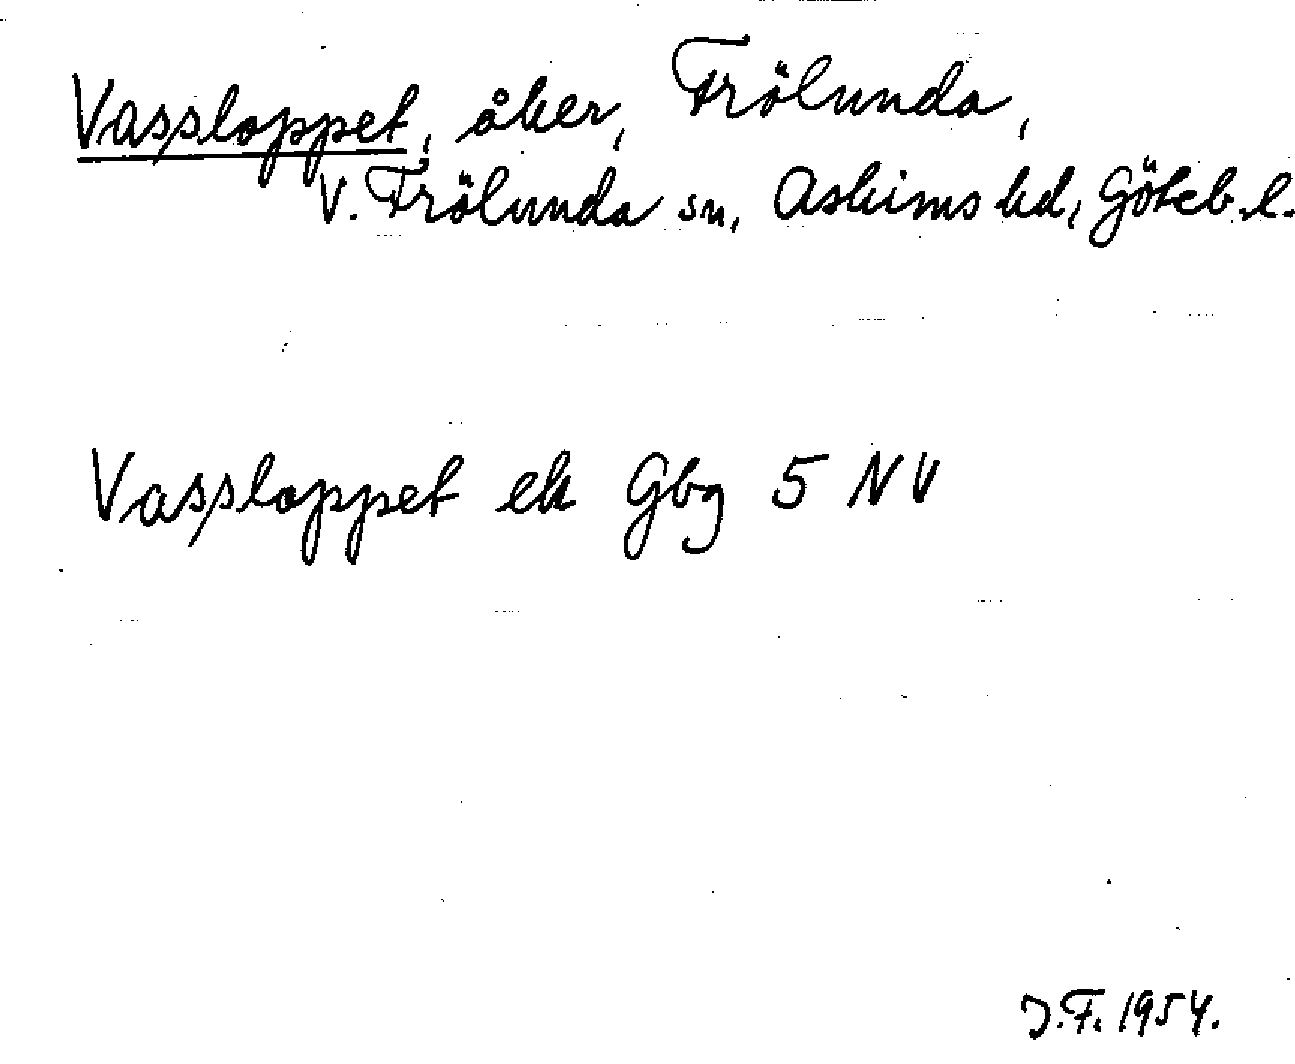 Vassloppet, åker, Frölunda,
V. Frölunda sn, Askims hd, Göteb. l.
Vassloppet ek Gbg 5 NV
J.F. 1954.